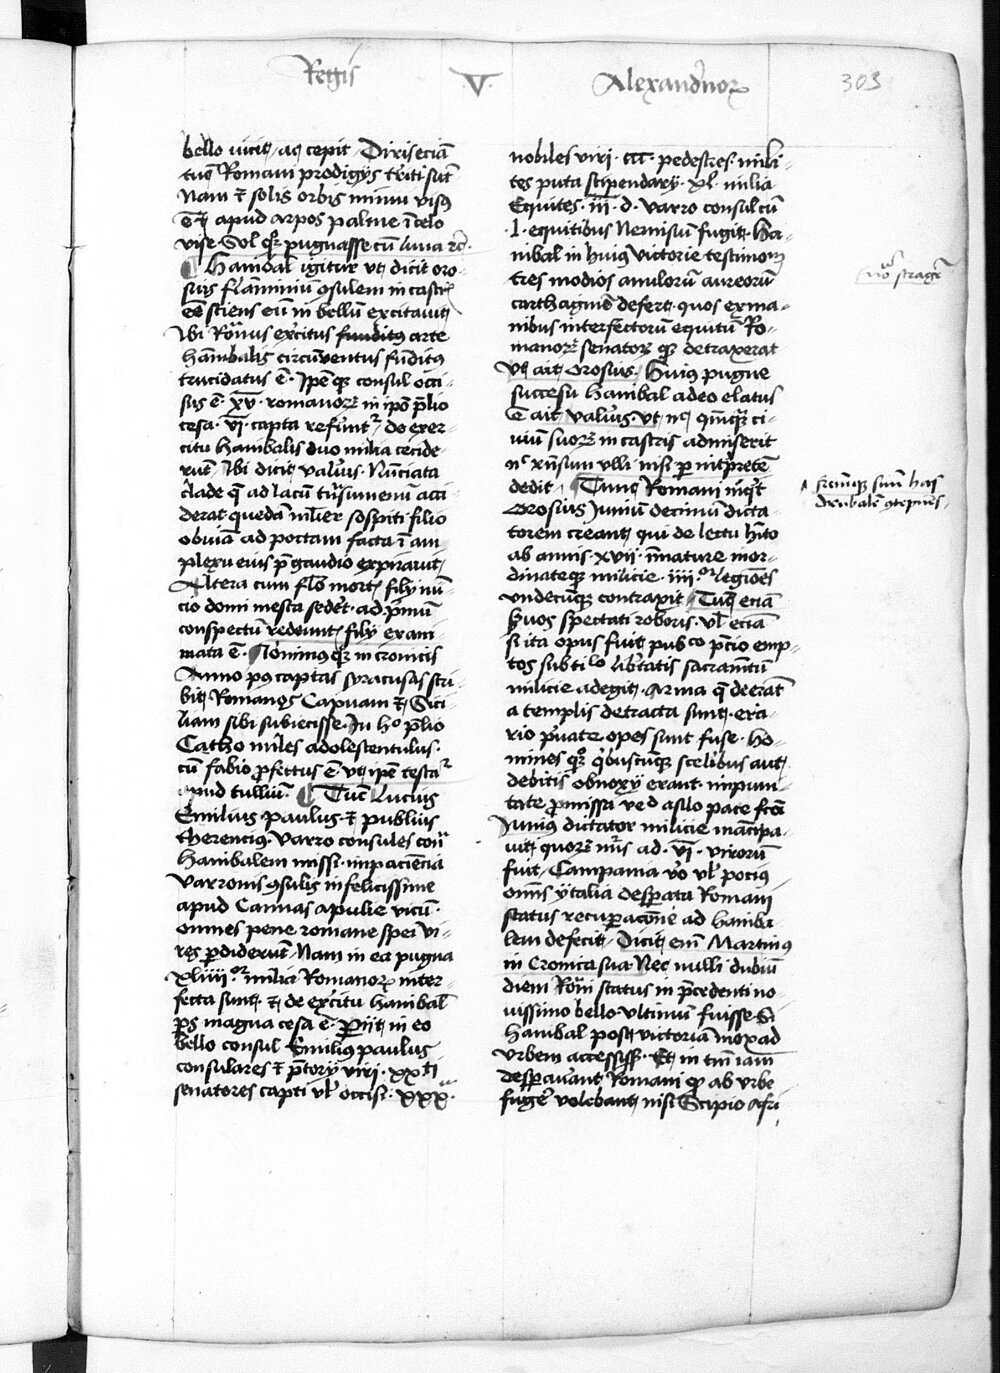 Regis V Alexandrinor᷑ 303
bello vicit / ac cepit / Diris eciā
tūc Romani prodigijs t̄riti sūt
Nam ⁊ solis orbis minui visꝰ
ē ⁊ apud arpos palme ī celo
vise Sol qꝫ pugnasse cū luna ⁊c̄.
Haniba᷑l igitur vt dicit oro-
sius flaminiū ꝯsulem in castris
eē sciens eū in bellū excitauit
Ubi Romanus excitus funditus arte
hānibalis circūuentus fūditꝰ
trucidatus ē. Ipse qꝫ consul occi-
sus ē. xv. romanoꝝ in ip̄o p̄lio
cesa. vi. capta referūtᷣ / de exer-
citu hanibalis duo milia cecide-
rūt / Ubi dicit valeriꝰ. Nūciata
clade q̄ ad lacū trāsumenū acci-
derat quedā mulier sospiti filio
obuiā ad portam facta ī am-
plexu eius p̄ gaudio expirauit
Altera cum falso mortis filij nū-
cio domi mesta sedet. ad pr̄imū
conspectū redeuntis filij exani-
mata ē. in cronicis
Anno pꝰ captas syracusas scri-
bit Romanos Capuam ⁊ Sici-
liam sibi subiecisse. In hͦ p̄lio
Catho miles adolescentulus.
cū fabio ꝓfectus ē. vt ipē testatᷣ
apud tulliū. Tūc Lucius
Emilius paulus ⁊ publius
therencius Varro consules contra
Hanibalem missi. impaciēcia
Varronis ꝯsulis infelicissime
apud Cannas apulie vicū.
omnes pene romane spei vi-
res ꝑdiderūt / Nam in ea pugna
xliiii.or milia Romanoꝝ inter-
fecta sunt. ⁊ de ex̄citu hanibal᷑
ꝑs magna cesa ē. ꝑijt in eo
bello consul Emiliꝰ paulus
consulares ⁊ p̄torij viri. xxti
senatores capti vl̓ occisi. xxx.
nobiles viri. ccc. pedestres mili-
tes puta stipendarij. xl. milia
Equites. iij. d. Varro consul cū
.l. equitibus Uenusiū fugit. Ha-
nibal in huiꝰ victorie testimoniū
tres modios anulorū aureorū
carthaginē defert. quos ex ma-
nibus interfectorū equitū Ro-
manoꝝ senatorū qꝫ detraxerat
Vt ait Orosius. Huius pugne
successu hanibal adeo elatus
ē ait valeriꝰ. vt nec quēqꝫ ci-
uiū suoꝝ in castris admiserit
nec responsum vlli nisi ꝑ int̄pretē
dedit. Tunc Romani inquit
Orosius Juniū decimū dicta-
torem creant. qui delectu hīto
ab annis. xvii. īmature inor-
dinateqꝫ milicie. iiii.or legiōes
vndecūqꝫ contraxit Tunc eciā
suos spectati roboris. vl̓ eciā
si ita opus fuit publico p̄cio emp-
tos sub titulo lib̄tatis sacramētū
milicie adegit. Arma q̄ deerāt
a templis detracta sunt. era-
rio p̄uate opes sunt fuse. ho-
mines qꝫ quibuscūqꝫ sceleribus aut
debitis obnoxij erant. impuni-
tate ꝓmissa
Junius dictator milicie mācipa-
uit. quorꝫ nūs ad. vi. virorū
fuit. Campania vo vl̓ pociꝰ
omīs ytalia desperata Romani
status recuperacōnē ad haniba-
lem defecit. Dicit enī Martinꝰ
in Cronica sua. Nec nulli dubiū
diem Romani status in p̄cedenti no-
uissimo bello vltimū fuisse. Si
hanibal post victoriā mox ad
vrbem accessisset. Et in tm̄ iam
desperauerant Romani qꝫ ab vrbe
fugere volebant. nisi Scipio afri
stragē